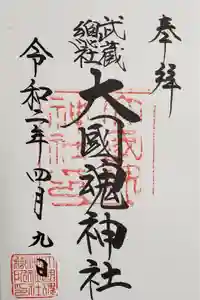 奉拝
武蔵
總社
大國魂神社
令和二年四月九日